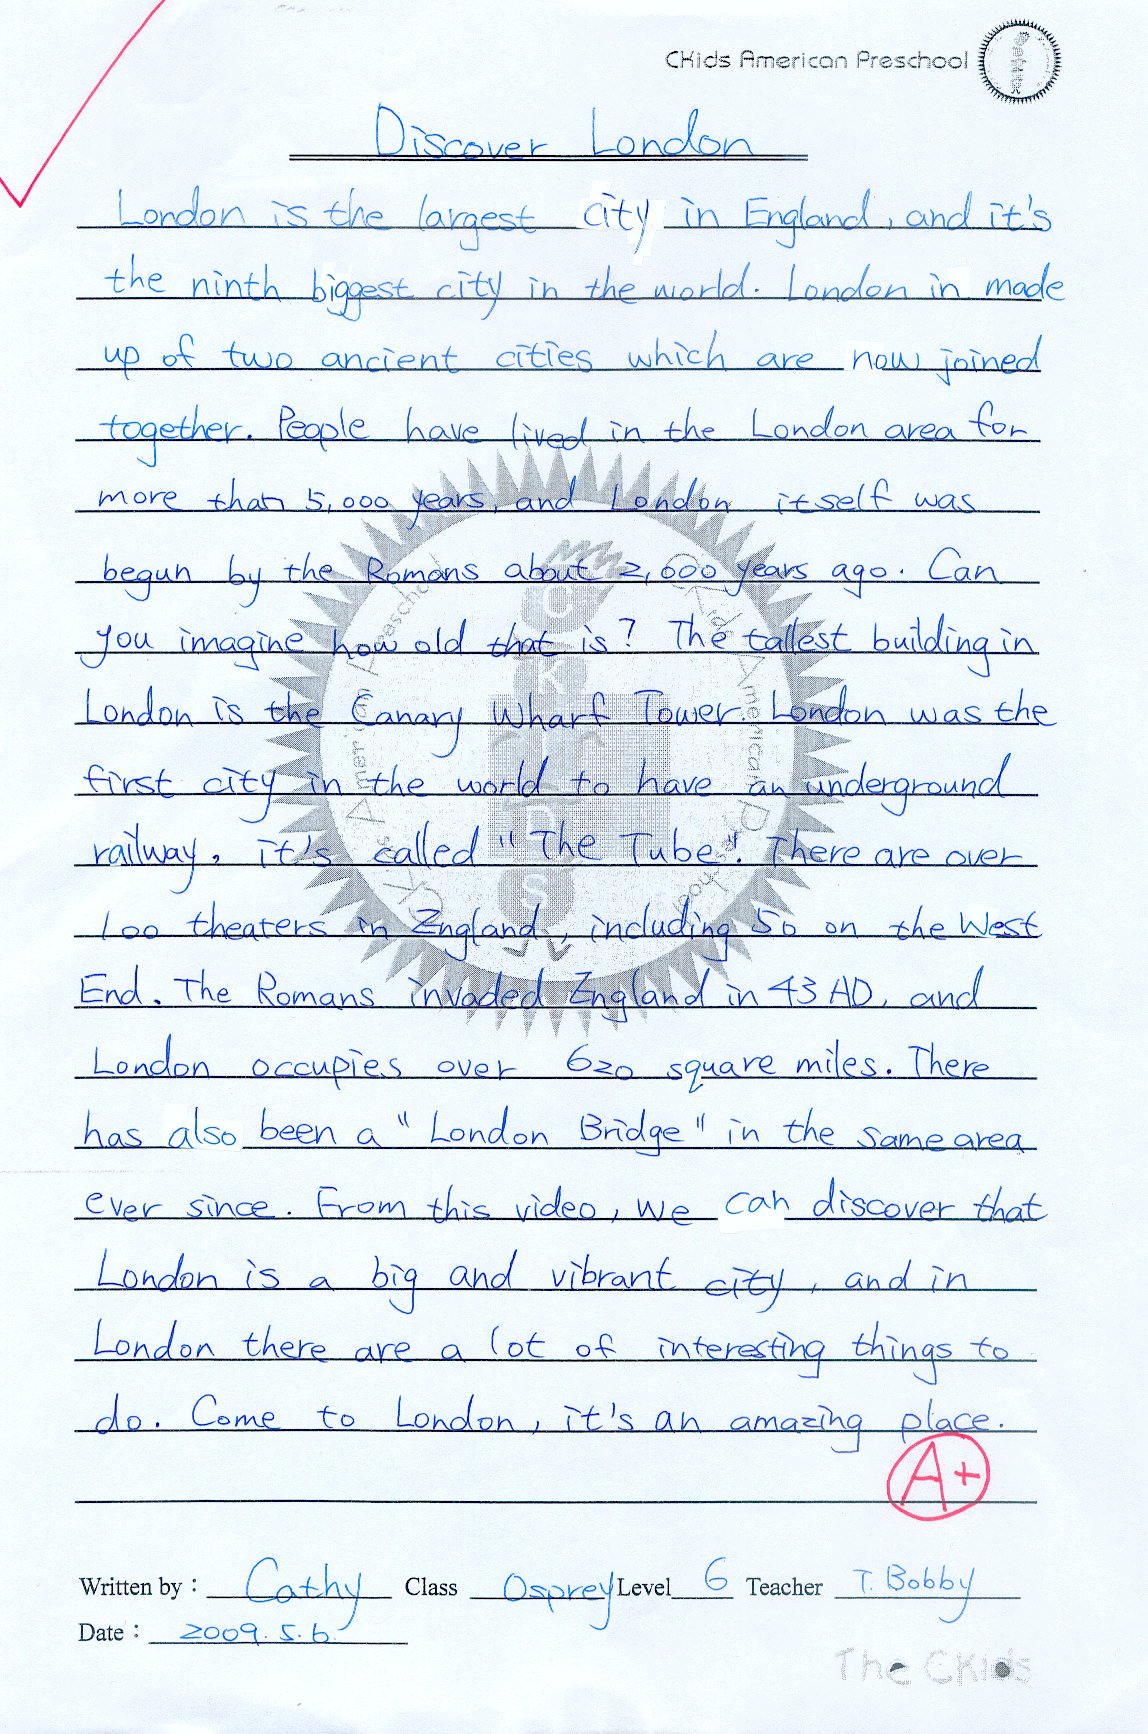 CKids American Preschool
Discover London
London is the largest city in England, and it's
the ninth biggest city in the world. London in made
up of two ancient cities which are now joined
together. People have lived in the London area for
more than 5,000 years, and London itself was
begun by the Romans about 2,600 years ago. Can
you imagine how old that is? The tallest building in
London is the Canary Wharf Tower. London was the
first city in the world to have an underground
railway, it's called "The Tube". There are over
100 theaters in England, including 50 on the West
End. The Romans invaded England in 43 AD, and
London occupies over 620 square miles. There
has also been a "London Bridge" in the same area
ever since. From this video, we can discover that
London is a big and vibrant city, and in
London there are a lot of interesting things to
do. Come to London, it's an amazing place.
A+
Written by : Cathy Class Osprey Level 6 Teacher T. Bobby
Date : 2009.5.6.
The CKids